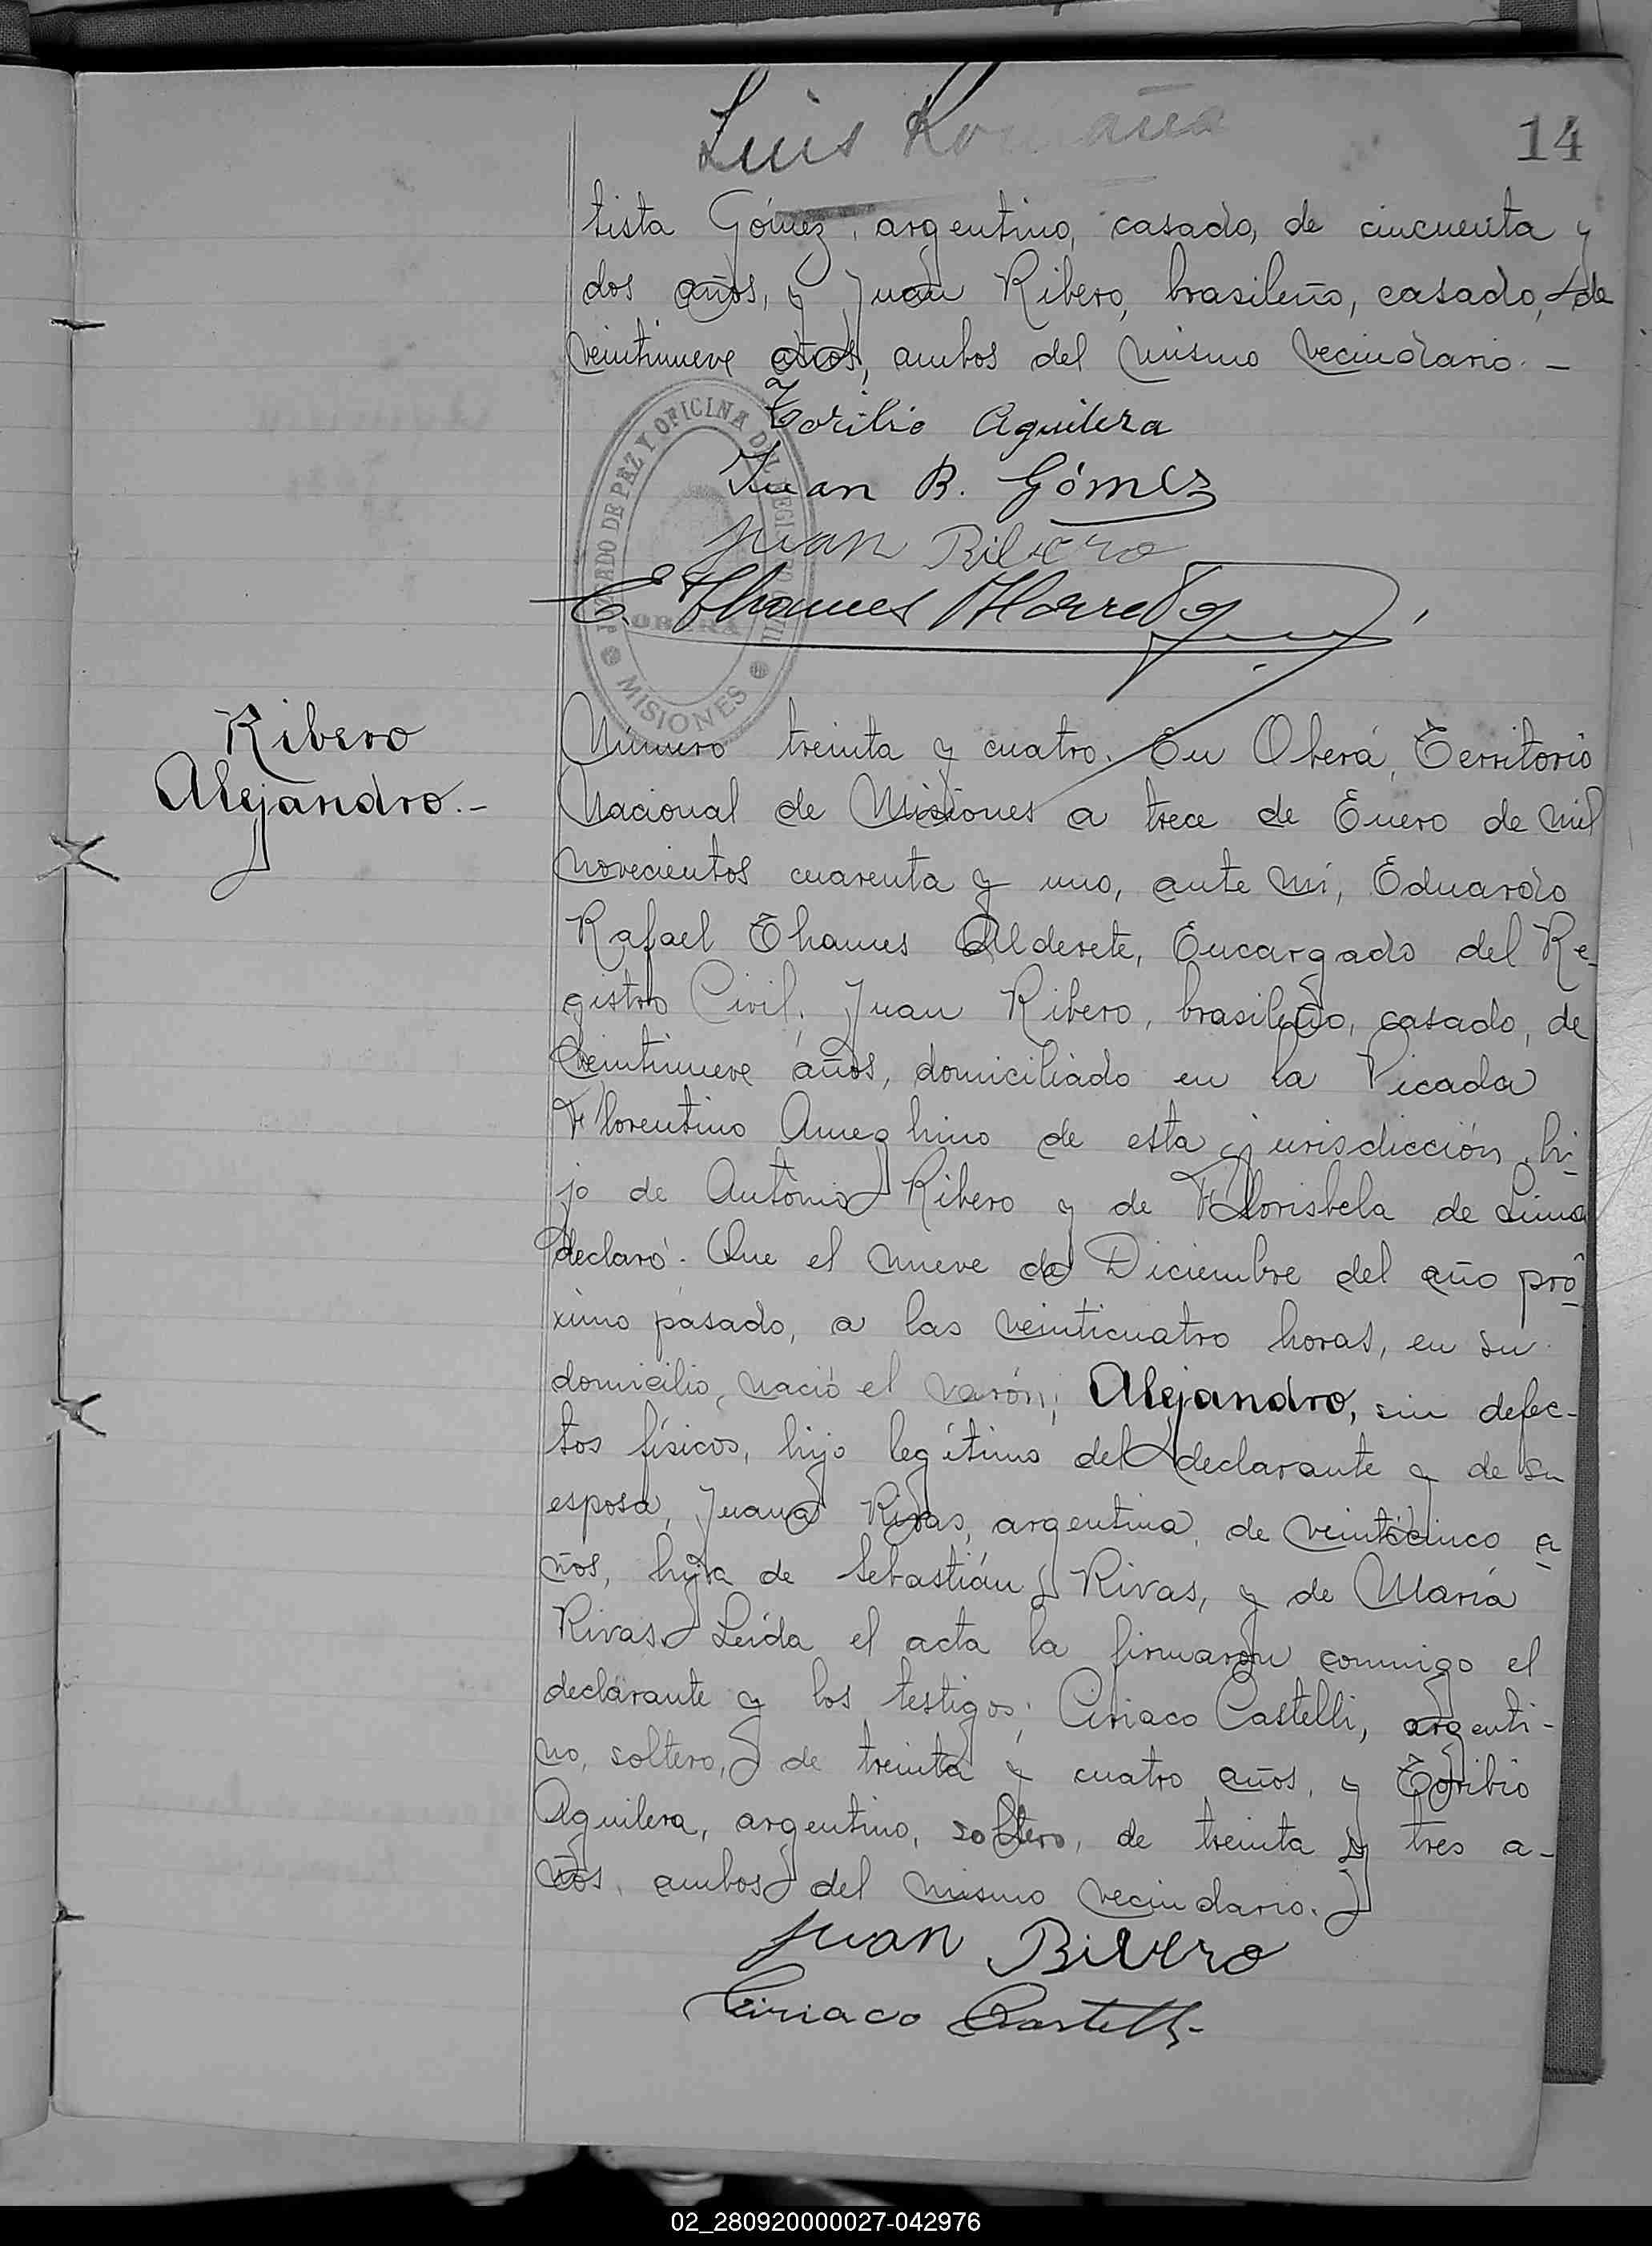 Luis Romaña
14
tista Gómez, argentino, casado, de cincuenta y
dos años, y Juan Ribero, brasileño, casado, de
veintinueve años, ambos del mismo vecindario. -
Toribio Aguilera
Juan B. Gómez
Juan Ribero
E. Thames Alderete
JUZGADO DE PAZ Y OFICINA DEL REGISTRO CIVIL
OBERÁ
MISIONES
Ribero
Alejandro.-
Número treinta y cuatro. En Oberá, Territorio
Nacional de Misiones a trece de Enero de mil
novecientos cuarenta y uno, ante mí, Eduardo
Rafael Thames Alderete, Encargado del Re-
gistro Civil. Juan Ribero, brasileño, casado, de
veintinueve años, domiciliado en la Picada
Florentino Ameghino de esta jurisdicción, hi-
jo de Antonio Ribero y de Florisbela de Lima
declaró. Que el nueve de Diciembre del año pró-
ximo pasado, a las veinticuatro horas, en su
domicilio, nació el varón; Alejandro, sin defec-
tos físicos, hijo legítimo del declarante y de su
esposa, Juana Rivas, argentina, de veinticinco a-
ños, hija de Sebastián Rivas, y de María
Rivas. Leída el acta la firmaron conmigo el
declarante y los testigos; Ciriaco Castelli, argenti-
no, soltero, de treinta y cuatro años, y Toribio
Aguilera, argentino, soltero, de treinta y tres a-
ños, ambos del mismo vecindario.
Juan Rivero
Ciriaco Castelli
02_280920000027-042976